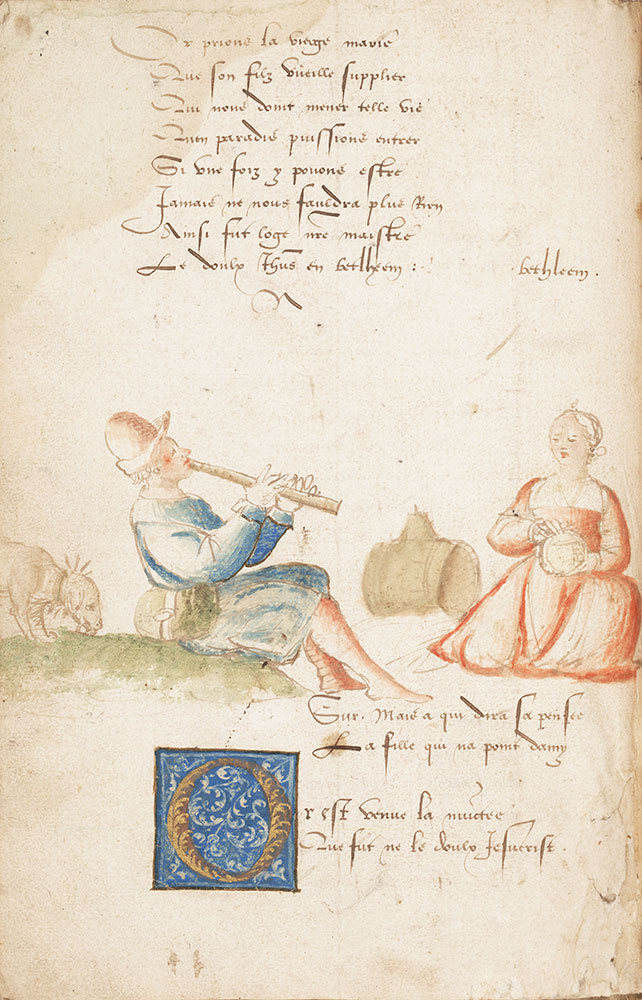 Or prions la vierge marie
Que son filz vueille supplier
Qui nous doint mener telle vie
Quen paradis puissions entrer
Si une foiz y povons estre
Jamais ne nous fauldra plus Rien
Ainsi fut loge nre maistre
Le doulx Jhus en betlheem : bethleem .
Sur . Mais a qui dira sa pensee
La fille qui na point damy
Or est venue la nuictee
Que fut ne le doulx Jesucrist .